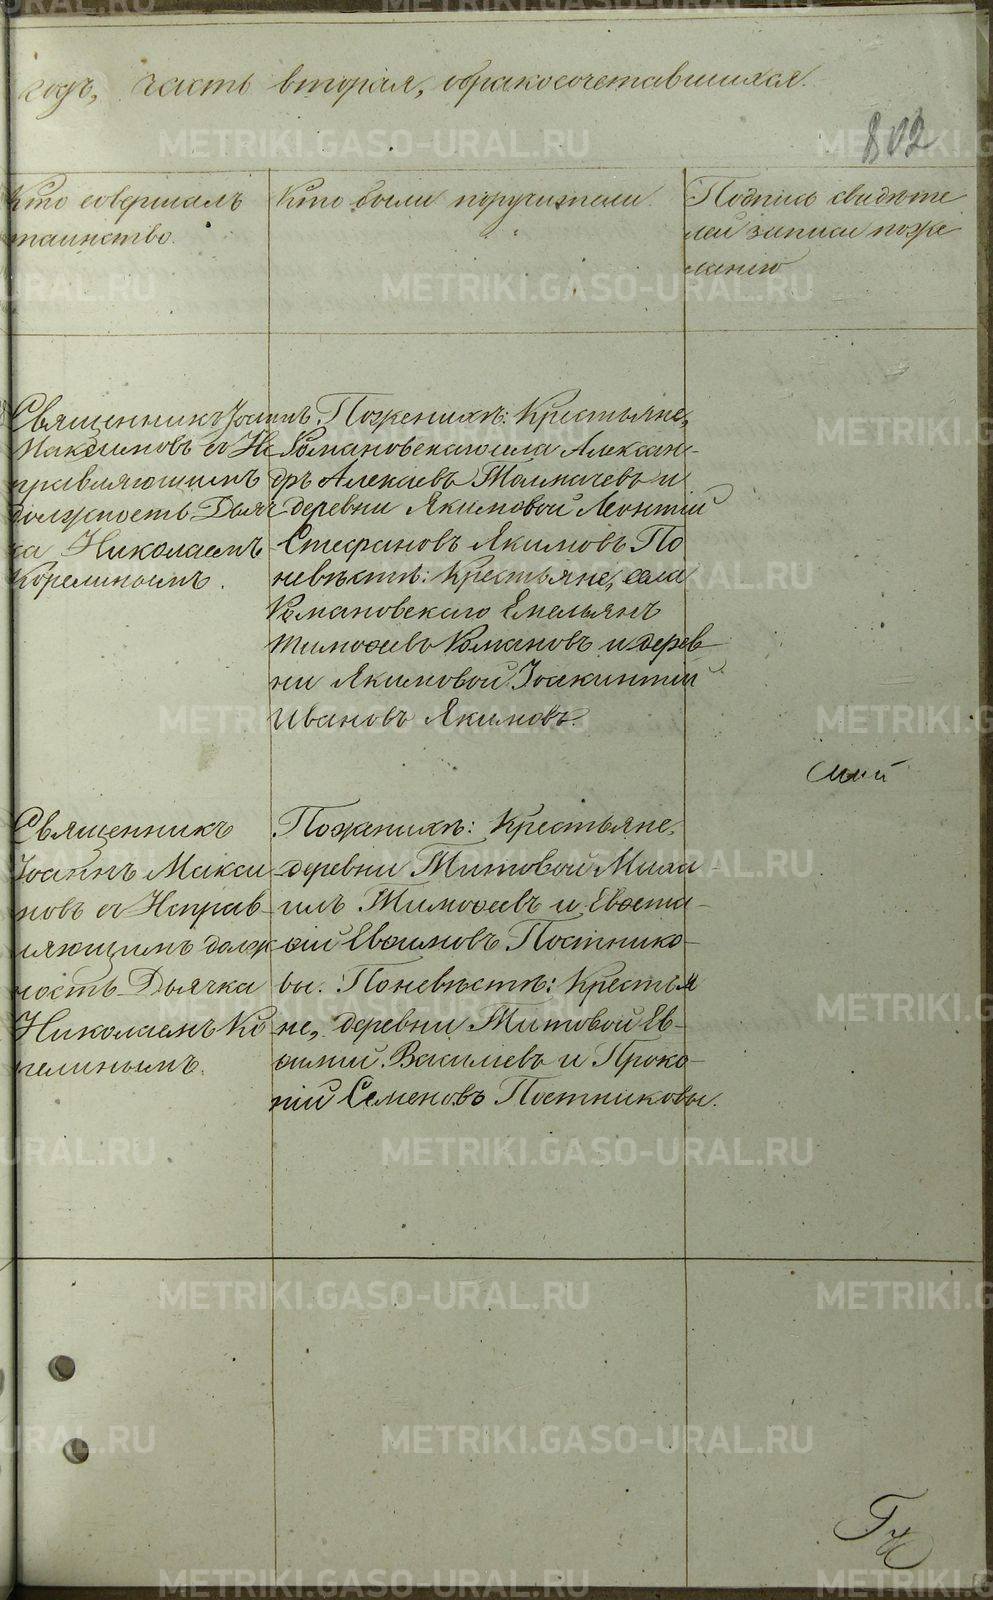 годъ, часть вторая, о бракосочетавшихся.
802
Кто совершалъ
таинство.
Кто были поручители.
Подпись свидѣте
лей записи по же
ланию
Священникъ Іоаннъ
Максимовъ съ Ис
правляющимъ
должность Дьяч
ка Николаемъ
Корелинымъ.
По женихѣ: Крестьяне,
Романовскаго села Алексан-
дръ Алексѣевъ Толмачевъ и
деревни Якимовой Леонтій
Стефановъ Якимовъ По
невѣстѣ: Крестьяне, села
Романовскаго Емельянъ
Тимофеевъ Романовъ и дерев
ни Якимовой Іоакинтий
Ивановъ Якимовъ.
Священникъ
Іоаннъ Макси
мовъ съ Исправ-
ляющимъ долж
ность Дьячка
Николаемъ Ко
релинымъ.
По женихѣ: Крестьяне,
деревни Титовой Миха
илъ Тимофеевъ и Евста-
фий Евфимовъ Постнико-
вы. По невѣстѣ: Крестья
не, деревни Титовой Ев-
фимий Василиевъ и Проко-
пій Семеновъ Постниковы.
METRIKI.GASO-URAL.RU